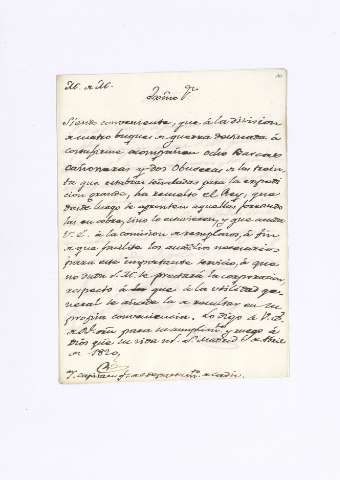 Exmo Sr.
Siendo conveniente, que á la division
de cuatro buques de guerra destinada á
costafirme acompañen ocho Barcas
cañoneras y dos Obuseras de las trein-
ta que estaban señaladas para la espedi-
cion grande, ha resuelto el Rey, que
desde luego se apronten aquellas forrando-
las en cobre, sino lo estuviesen, y que
V. E. á la comision de reemplazos, á fin
de que facilite los auxilios necesarios
para este importante servicio, á que
no duda S. M. se prestará la corporacion,
respecto á que á la utilidad ge-
neral se añade la de resultar en su
propia conveniencia. Lo digo á V. E.
de Rl. orn para su cumplimto y ruego á
Dios que su vida ms. as. Madrid de Abril
de 1820,
Sr. capitan gl. del departamto de Cadiz